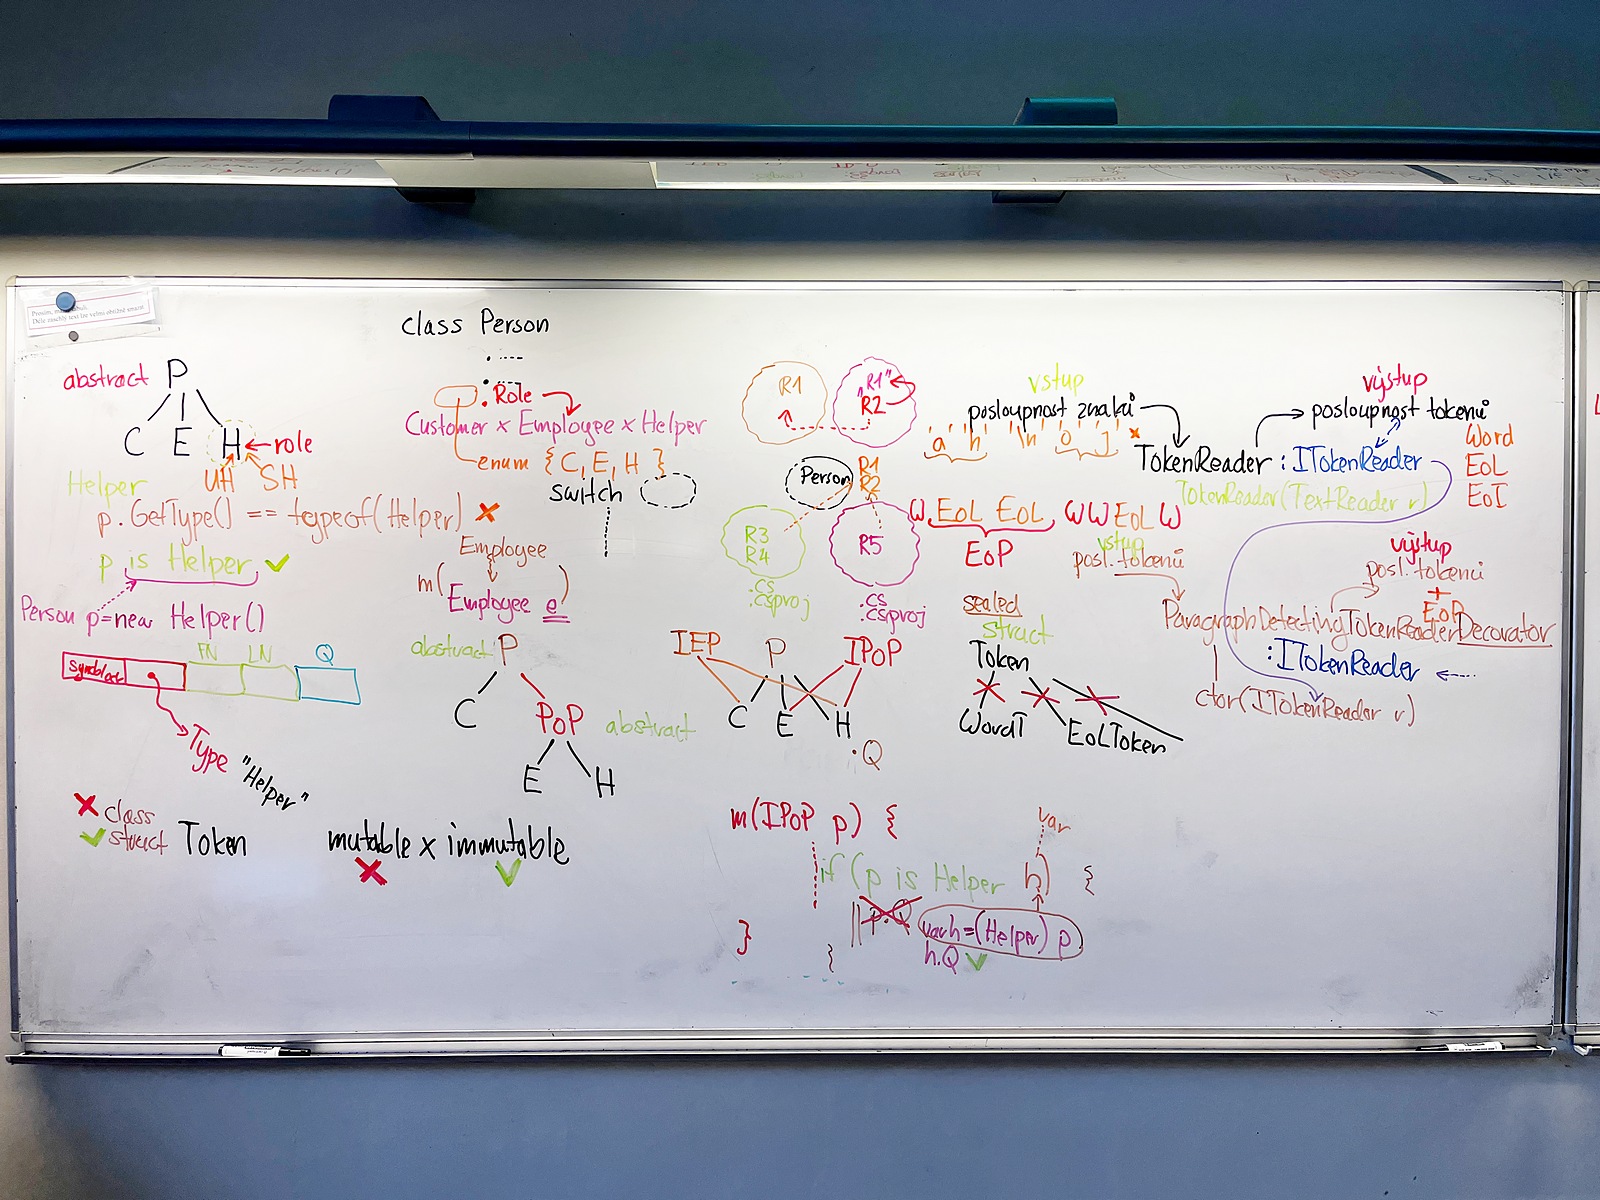 Děle zaschlý text lze velmi obtížně smazat
class Person
abstract P
C E H ← role
UH SH
Helper
p.GetType() == typeof(Helper) ✗
p is Helper ✓
Person p=new Helper()
syncblock FN LN Q
Type "Helper"
✗ class
✓ struct Token
mutable x immutable
✗ ✓
. Role
Customer x Employee x Helper
enum { C, E, H }
switch
Employee
m( Employee e )
abstract P
C PoP abstract
E H
R1
R1"
R2
Person R1
R2
R3
R4
R5
.cs
.csproj
.cs
.csproj
IEP P IPoP
C E H
.Q
m(IPoP p) {
var
if (p is Helper h) {
|| p.Q var h=(Helper) p
h.Q ✓
}
}
vstup
posloupnost znaků
'a' 'h' '\n' 'o' 'j'
TokenReader : ITokenReader
TokenReader(TextReader r)
výstup
posloupnost tokenů
Word
EoL
EoI
W EoL EoL W W EoL W
EoP
vstup
posl. tokenů
výstup
posl. tokenů
+
EoP
ParagraphDetectingTokenReaderDecorator
: ITokenReader
ctor(ITokenReader r)
sealed
struct
Token
WordT EoLToken